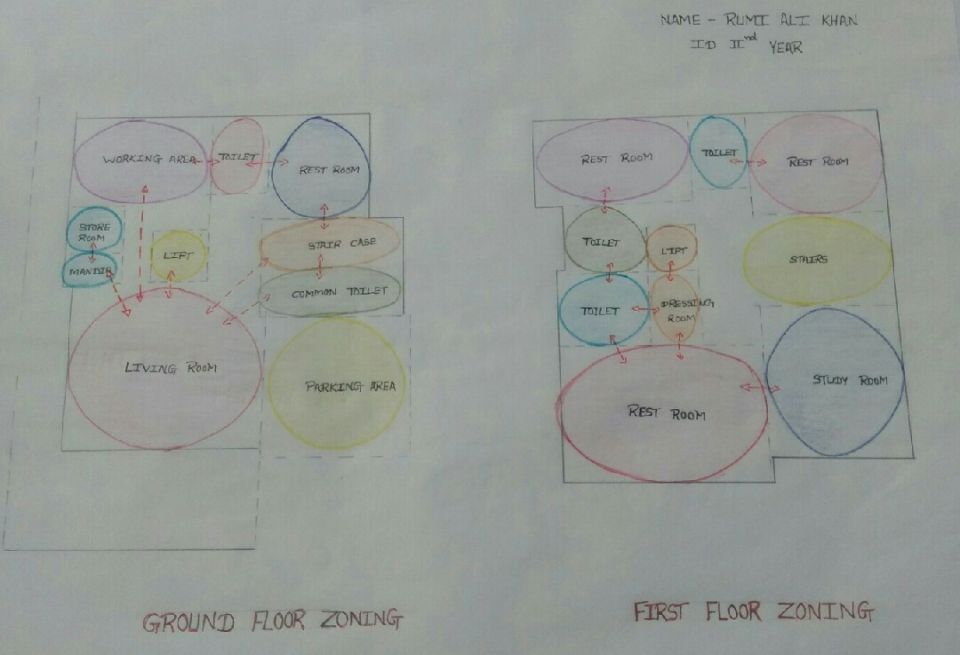 NAME - RUMI ALI KHAN
ID IInd YEAR
WORKING AREA
TOILET
REST ROOM
STORE
ROOM
MANDIR
LIFT
STAIR CASE
COMMON TOILET
LIVING ROOM
PARKING AREA
GROUND FLOOR ZONING
REST ROOM
TOILET
REST ROOM
TOILET
LIFT
STAIRS
TOILET
DRESSING
ROOM
REST ROOM
STUDY ROOM
FIRST FLOOR ZONING